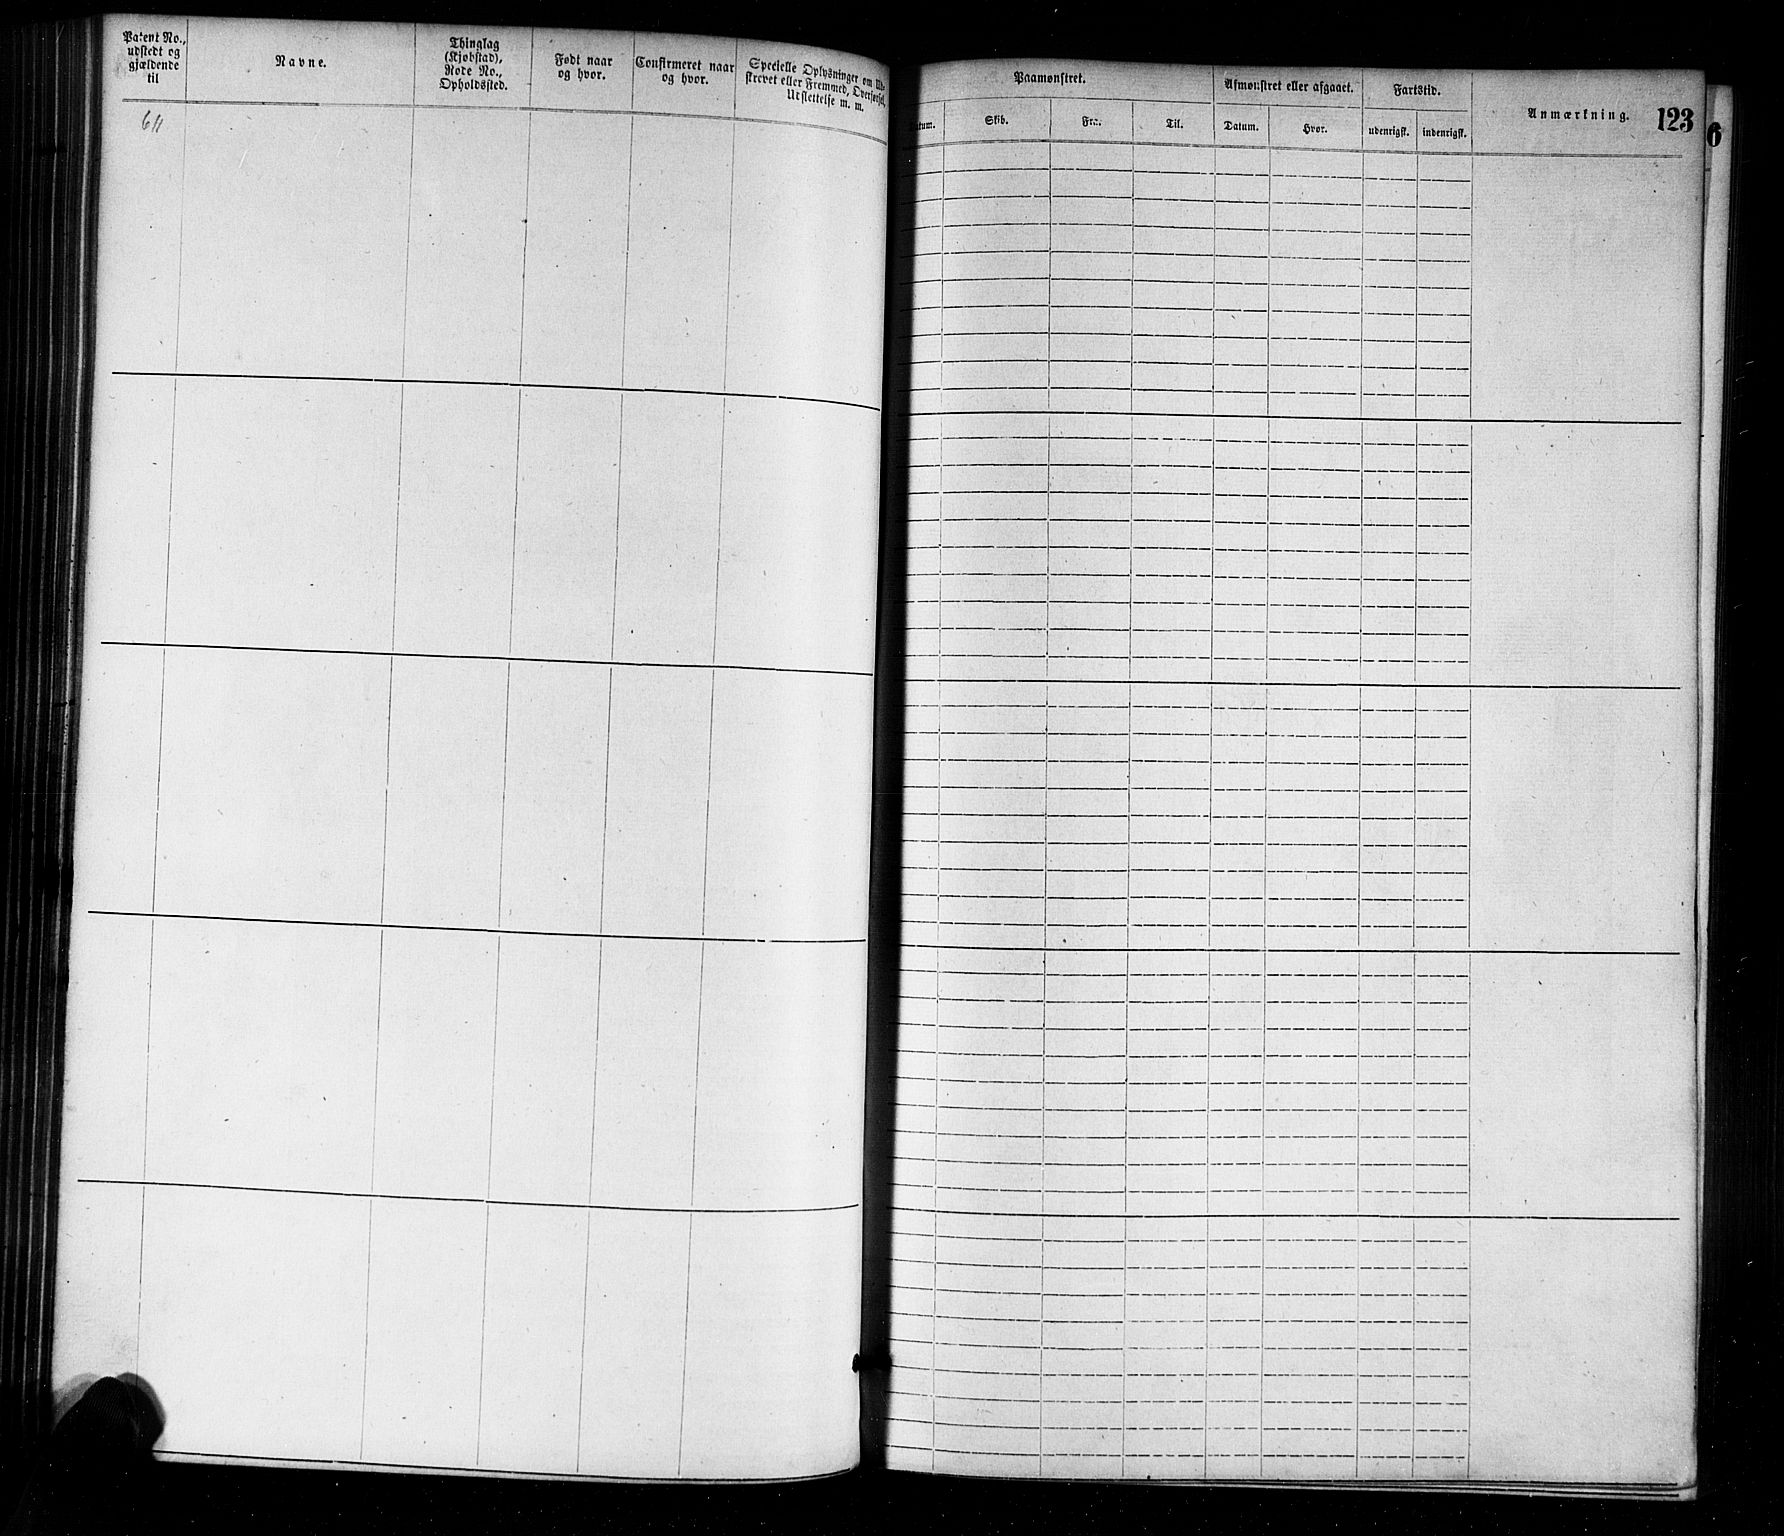 Patent No.,
udstedt og
gjældende
til
Navne.
Thinglag
(Kjøbstad),
Rode No.,
Opholdssted.
Født naar
og hvor.
Confirmeret naar
og hvor.
Specielle Oplysninger om Ud-
skrevet eller Fremmed, Overførsel,
Udslettelse m. m.
611
Paamønstret.
Afmønstret eller afgaaet.
Fartstid.
Anmærkning.
123
6
Datum.
Skib.
Fra.
Til.
Datum.
Hvor.
udenrigsk.
indenrigsk.